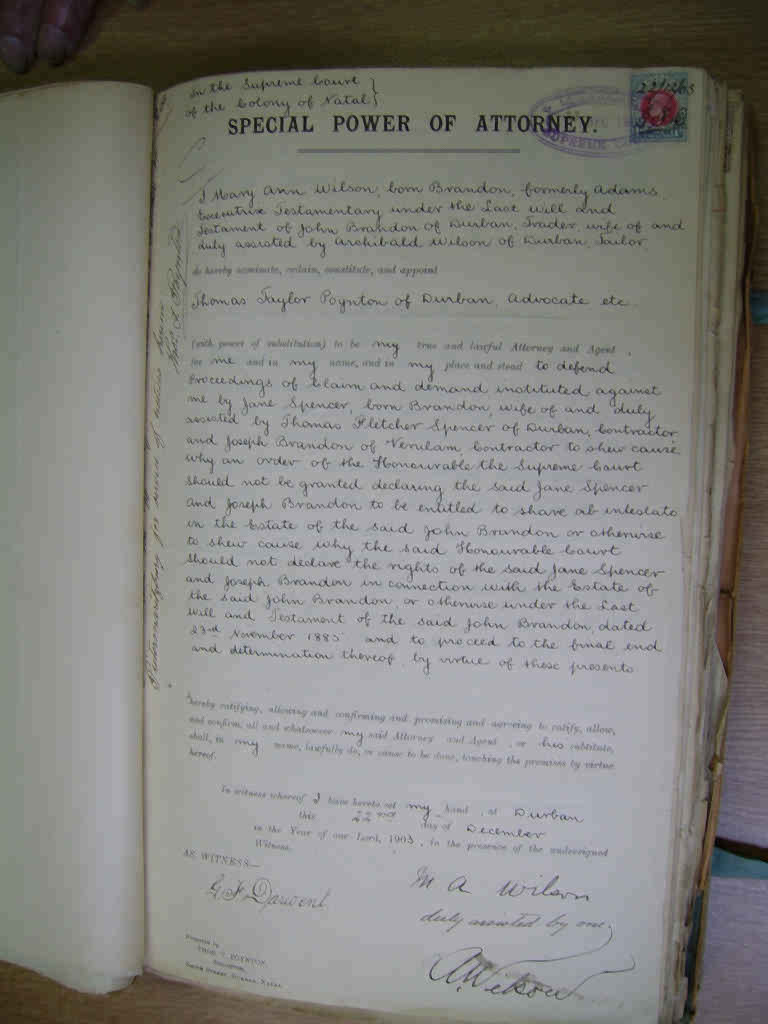 In the Supreme Court }
of the Colony of Natal }
22/12/03
SUPREME C
SPECIAL POWER OF ATTORNEY.
I Mary Ann Wilson, born Brandon, formerly Adams,
Executrix Testamentary under the Last Will and
Testament of John Brandon of Durban, Trader, wife of and
duly assisted by Archibald Wilson of Durban, Tailor,
do hereby nominate, ordain, constitute, and appoint
Thomas Taylor Poynton of Durban, Advocate etc.
(with power of substitution) to be my true and lawful Attorney and Agent,
for me and in my name, and in my place and stead to defend
Proceedings of Claim and demand instituted against
me by Jane Spencer, born Brandon, wife of and duly
assisted by Thomas Fletcher Spencer of Durban, Contractor
and Joseph Brandon of Verulam, Contractor to shew cause
why an order of the Honourable the Supreme Court
should not be granted declaring the said Jane Spencer
and Joseph Brandon to be entitled to share ab intestato
in the Estate of the said John Brandon or otherwise
to shew cause why the said Honourable Court
should not declare the rights of the said Jane Spencer
and Joseph Brandon in connection with the Estate of
the said John Brandon, or otherwise under the Last
Will and Testament of the said John Brandon, dated
23rd November 1885 and to proceed to the final end
and determination thereof, by virtue of these presents
hereby ratifying, allowing and confirming and promising and agreeing to ratify, allow,
and confirm, all and whatsoever my said Attorney and Agent, or his substitute,
shall, in my name, lawfully do, or cause to be done, touching the premises by virtue
hereof.
In witness whereof I have hereto set my hand, at Durban
this 22nd day of December
in the Year of our Lord, 1903, in the presence of the undersigned
Witness.
AS WITNESS—
G F Darvent
M A Wilson
duly assisted by me,
A. Wilson
Prepared by
THOS. T. POYNTON,
SOLICITOR,
SMITH STREET, DURBAN, NATAL